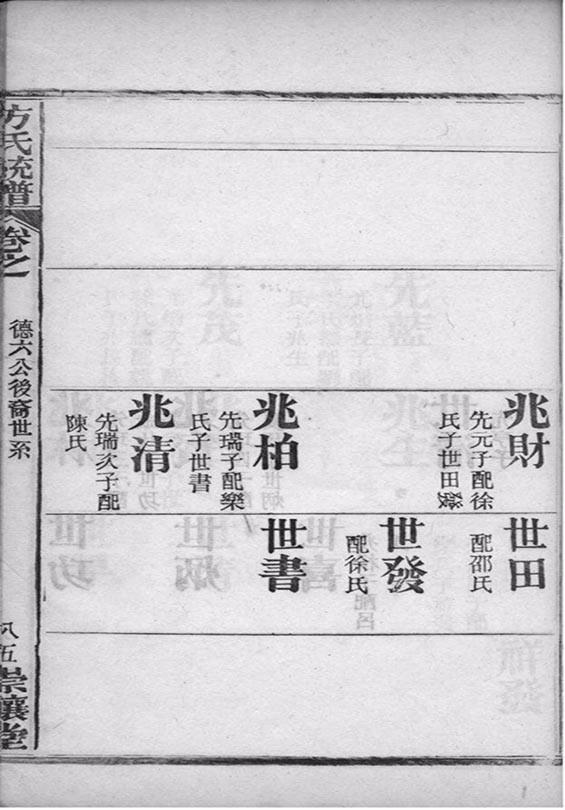 兆財
先元子配徐
氏子世田發
兆柏
先瑞子配樂
氏子世書
兆清
先瑞次子配
陳氏
世田
配邵氏
世發
配徐氏
世書
方氏統譜
卷之
德六公後裔世系
八五
崇讓堂